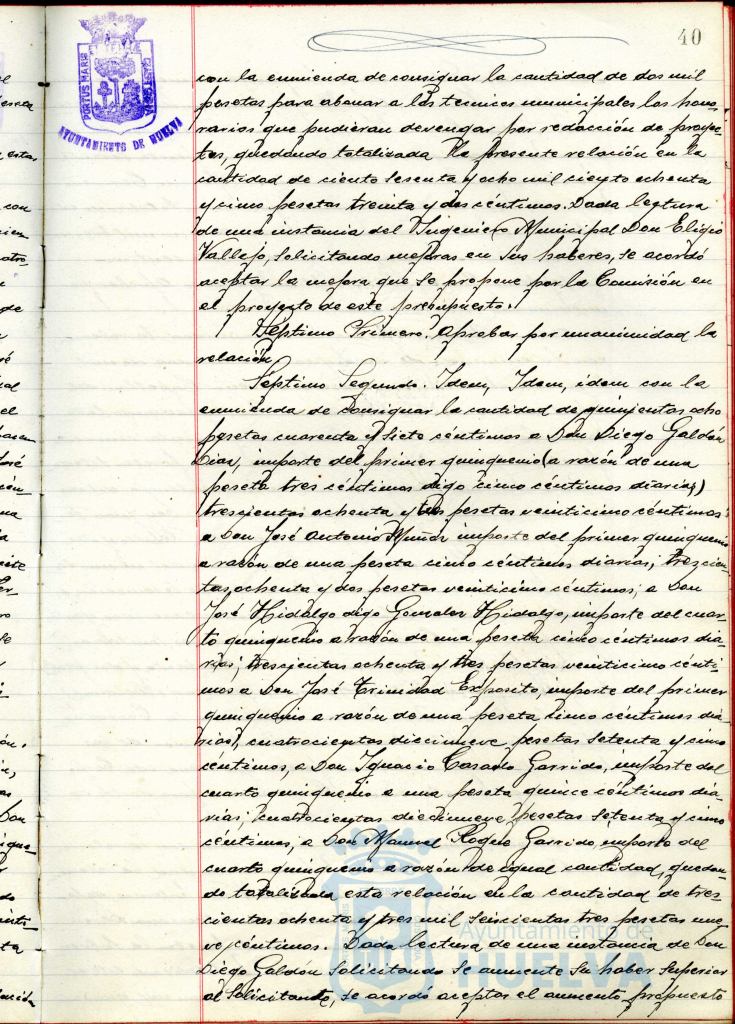 40
PORTUS MARIS
CUSTODIA
AYUNTAMIENTO DE HUELVA
con la enmienda de consignar la cantidad de dos mil
pesetas para abonar a los tecnicos municipales los hono-
rarios que pudieran devengar por redacción de proyec-
tos, quedando totalizada la presente relación en la
cantidad de ciento sesenta y ocho mil ciento ochenta
y cinco pesetas treinta y dos céntimos. Dada lectura
de una instancia del Ingeniero Municipal Don Eligio
Vallejo, solicitando mejoras en sus haberes, se acordó
aceptar la mejora que se propone por la Comisión en
el proyecto de este presupuesto.
Septimo Primero. Aprobar por unanimidad la
relación
Séptimo Segundo. Idem, Idem, idem con la
enmienda de consignar la cantidad de quinientas ocho
pesetas cuarenta y siete céntimos a Don Diego Galdón
Diaz, importe del primer quinquenio (a razón de una
peseta tres céntimos digo cinco céntimos diarias)
trescientas ochenta y tres pesetas veinticinco céntimos
a Don José Antonio Muñoz importe del primer quinquenio
a razón de una peseta cinco céntimos diarias; trescien-
tas ochenta y dos pesetas veinticinco céntimos, a Don
José Hidalgo digo Gonzalez Hidalgo, importe del cuar-
to quinquenio a razón de una peseta cinco céntimos dia-
rias; trescientas ochenta y tres pesetas veinticinco cénti-
mos a Don José Trinidad Exposito, importe del primer
quinquenio a razón de una peseta cinco céntimos dia-
rias), cuatrocientas diecinueve pesetas setenta y cinco
centimos, a Don Ignacio Casado Garrido, importe del
cuarto quinquenio a una peseta quince céntimos dia-
rias; cuatrocientas diecinueve pesetas setenta y cinco
céntimos, a Don Manuel Roque Garrido, importe del
cuarto quinquenio a razón de igual cantidad, quedan-
do totalizada esta relación en la cantidad de tres-
cientas ochenta y tres mil seiscientas tres pesetas nue-
ve céntimos. Dada lectura de una instancia de Don
Diego Galdón solicitando se aumente su haber superior
al solicitante, se acordó aceptar el aumento propuesto
Ayuntamiento de
HUELVA